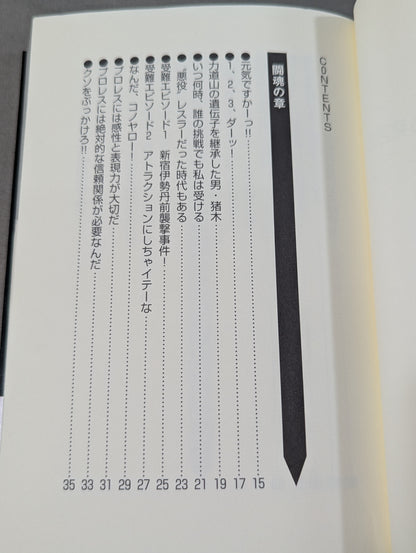 CONTENTS
闘魂の章
●元気ですかーっ!!……15
●1、2、3、ダーッ!……17
●力道山の遺伝子を継承した男・猪木……19
●いつ何時、誰の挑戦でも私は受ける……21
●“悪役”レスラーだった時代もある……23
●受難エピソード1 新宿伊勢丹前襲撃事件!……25
●受難エピソード2 アトラクションにしちゃイテーな……27
●なんだ、コノヤロー!……29
●プロレスには感性と表現力が大切だ……31
●プロレスには絶対的な信頼関係が必要なんだ……33
●クソをぶっかけろ!!……35